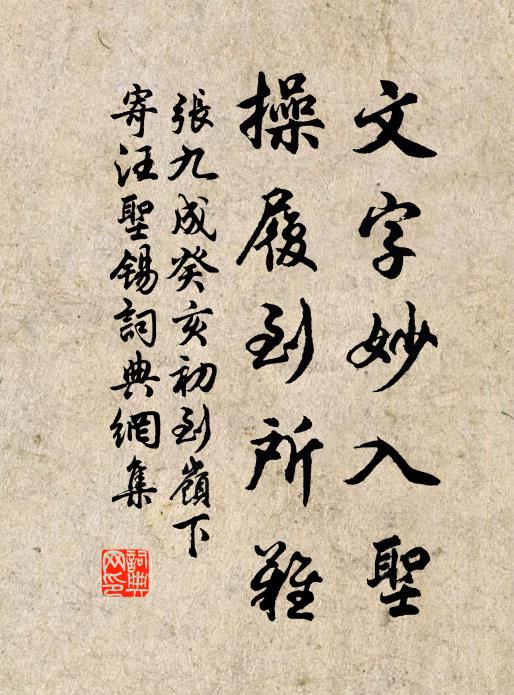 文字妙入聖
操履到所難
張九成癸亥初到嶺下
寄汪聖錫詞典網集
詞典网印